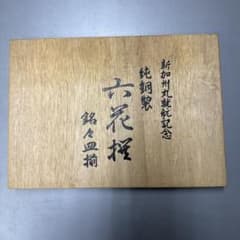 新加州丸就航記念
純銅製
六花撰
銘々皿揃